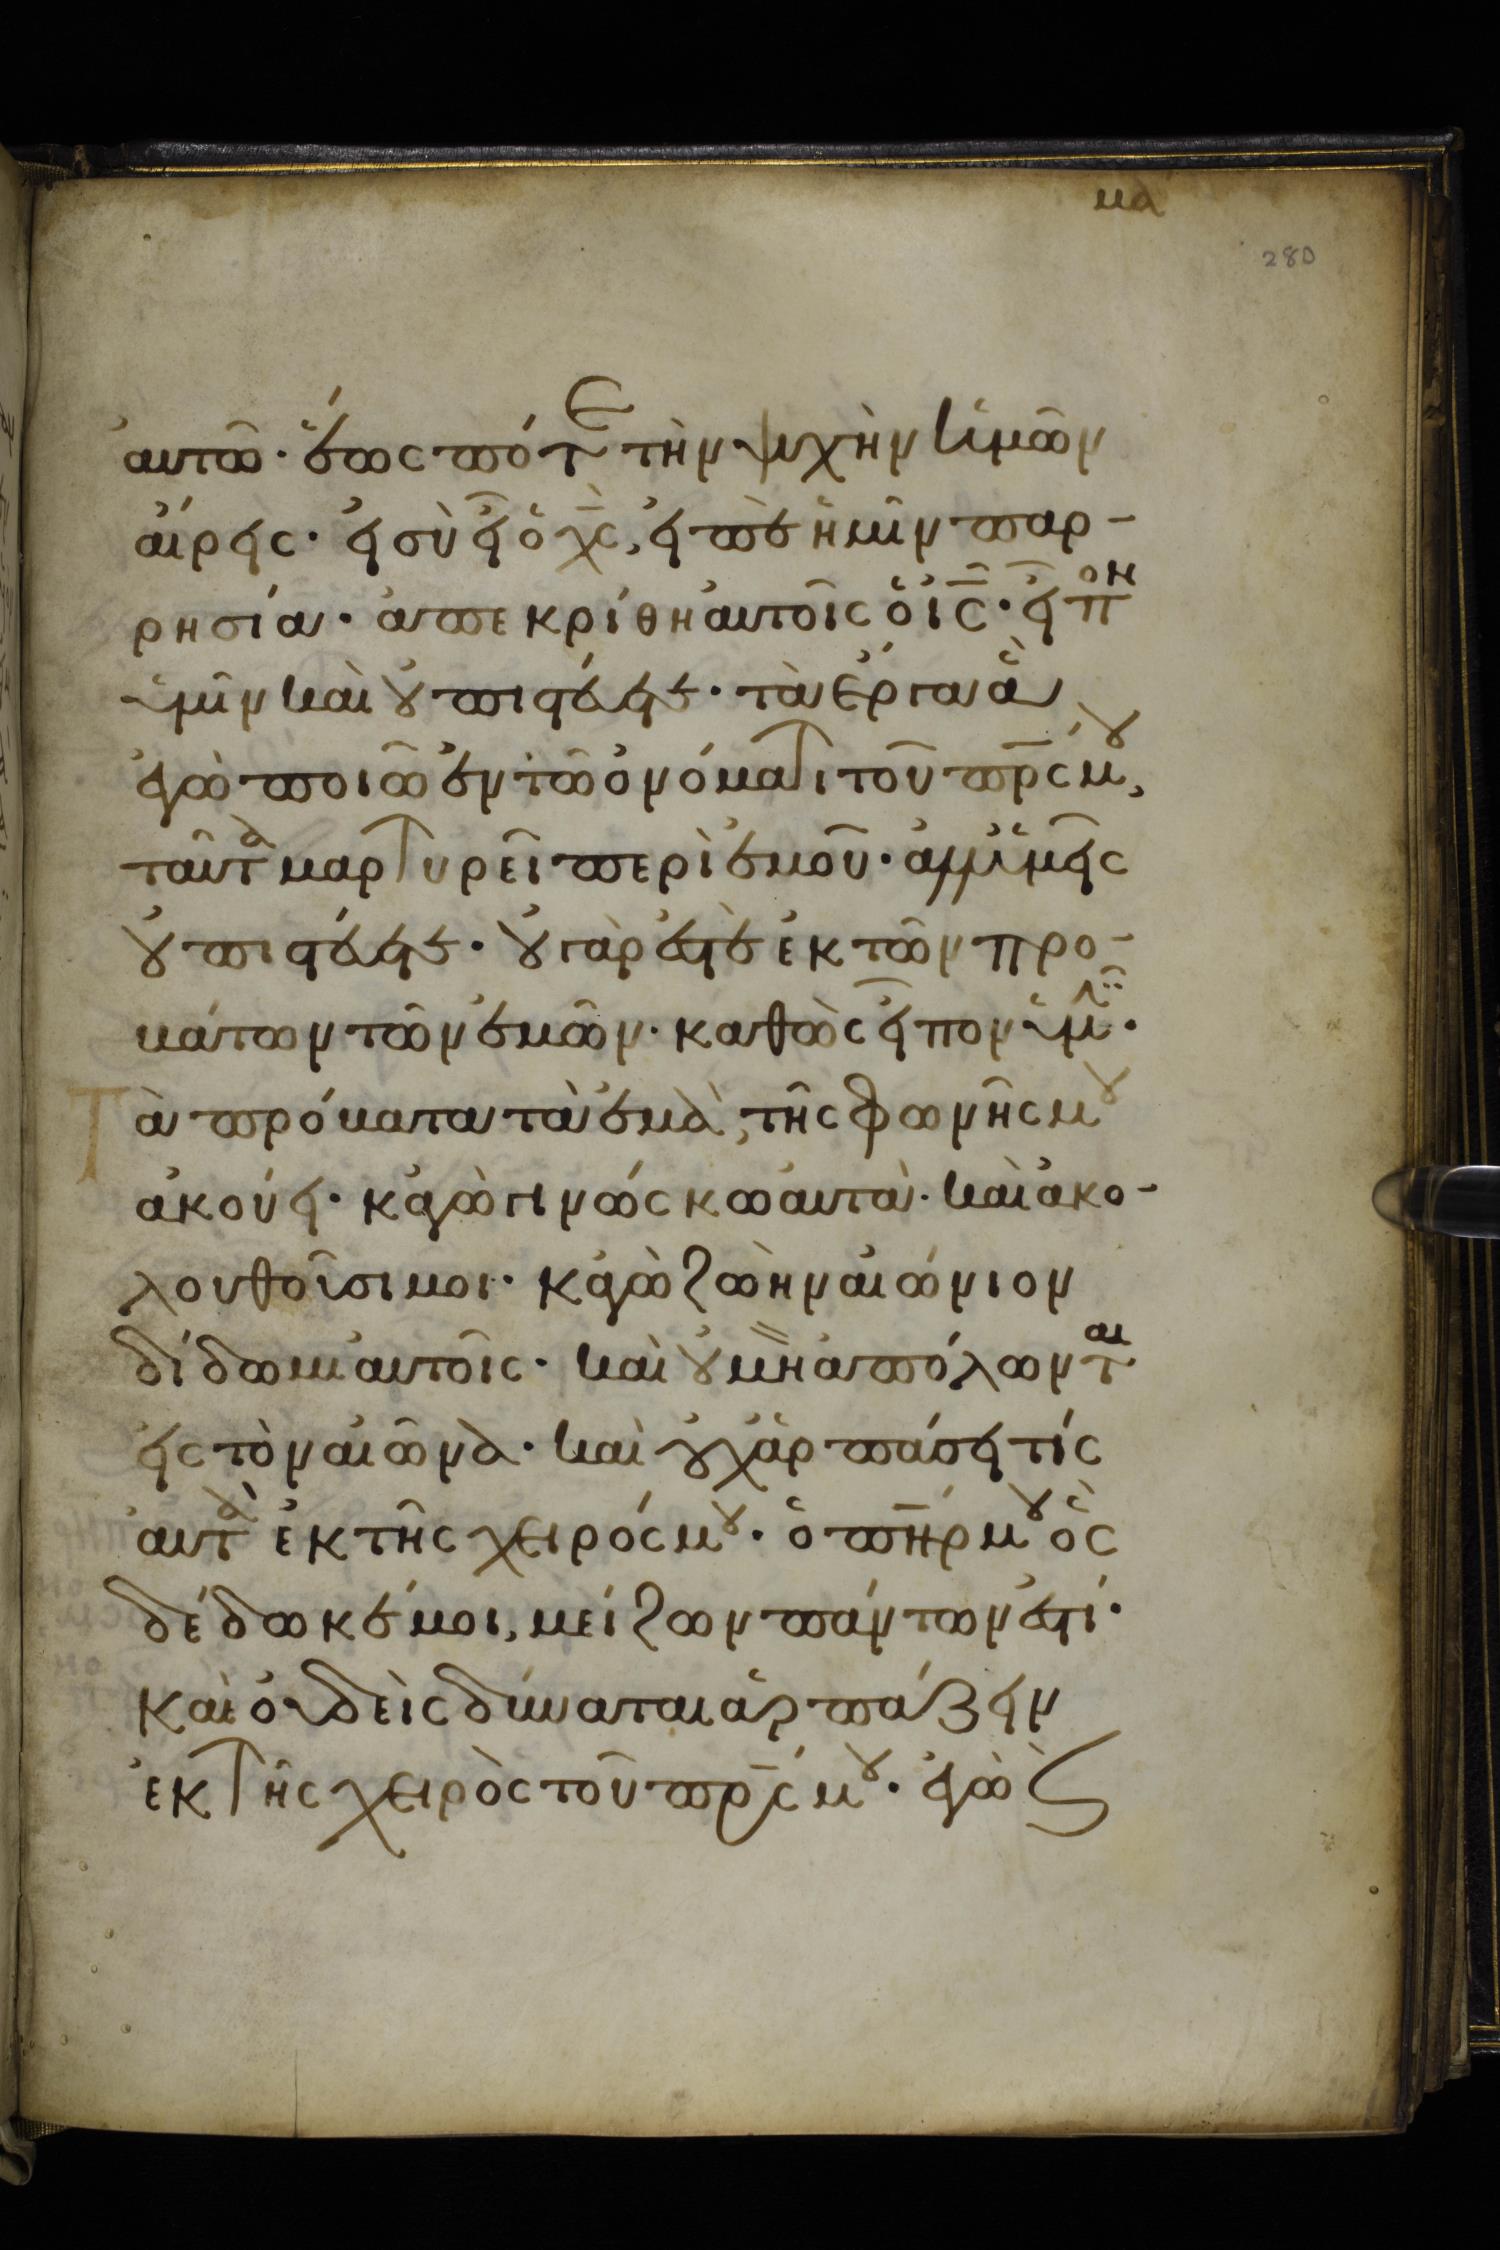 μα
280
αὐτῶ· ἕως πότε τὴν ψυχὴν ἡμῶν
αἴρεις· εἰ σὺ εἶ ὁ χ̅ς, εἰπὲ ἡμῖν παρ-
ρησία· ἀπεκρίθη αὐτοῖς ὁ ι̅ς· εἶπον
ὑμῖν καὶ οὐ πιστεύετε· τὰ ἔργα ἃ
ἐγὼ ποιῶ ἐν τῶ ὀνόματι τοῦ π̅ρ̅ς μου,
ταῦτα μαρτυρεῖ περὶ ἐμοῦ· ἀλλ' ὑμεῖς
οὐ πιστεύετε· οὐ γάρ ἐστὲ ἐκ τῶν προ-
βάτων τῶν ἐμῶν· καθὼς εἶπον ὑμῖν·
Τὰ πρόβατα τὰ ἐμὰ, τῆς φωνῆς μου
ἀκούει· κἀγὼ γινώσκω αὐτὰ· καὶ ἀκο-
λουθοῦσι μοι· κἀγὼ ζωὴν αἰώνιον
δίδωμι αὐτοῖς· καὶ οὐ μὴ ἀπόλωνται
εἰς τὸν αἰῶνα· καὶ οὐχ ἁρπάσει τίς
αὐτὰ ἐκ τῆς χειρός μου· ὁ π̅η̅ρ μου ὃς
δέδωκέ μοι, μείζων πάντων ἐστί·
καὶ οὐδεὶς δύναται ἁρπάζειν
ἐκ τῆς χειρὸς τοῦ π̅ρ̅ς μου· ἐγὼ καὶ